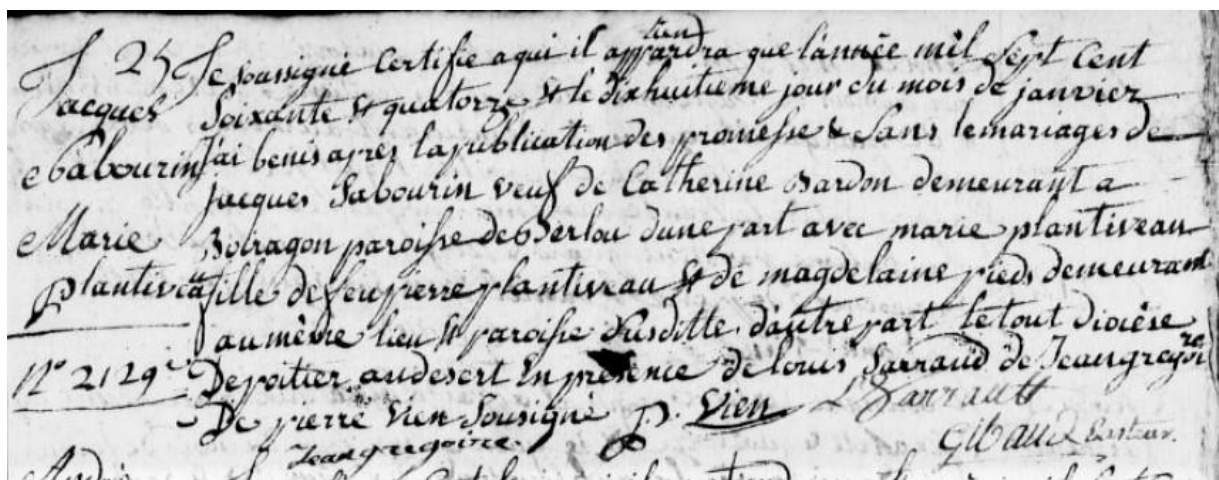 f. 25 Je soussigné Certifie a qui il appartiendra que l'année mil Sept Cent
Jacques Soixante & quatorze & le dixhuitieme jour du mois de janvier
Sabourin j'ai benis après la publication des promesse & Sans le mariages de
jacques Sabourin veuf de Catherine Bardon demeurant a
Marie paroisse de d'une part avec marie plantiveau
plantiveau fille de feu pierre plantiveau & de magdelaine pieds demeurant
au même lieu & paroisse susditte d'autre part le tout diocèse
No 2129e De poitier au desert En présence de louis Sarraud de Jean gregoire
De pierre Vien Sousigné P. Vien L Sarrault
Jean gregoire Gibaud pasteur.